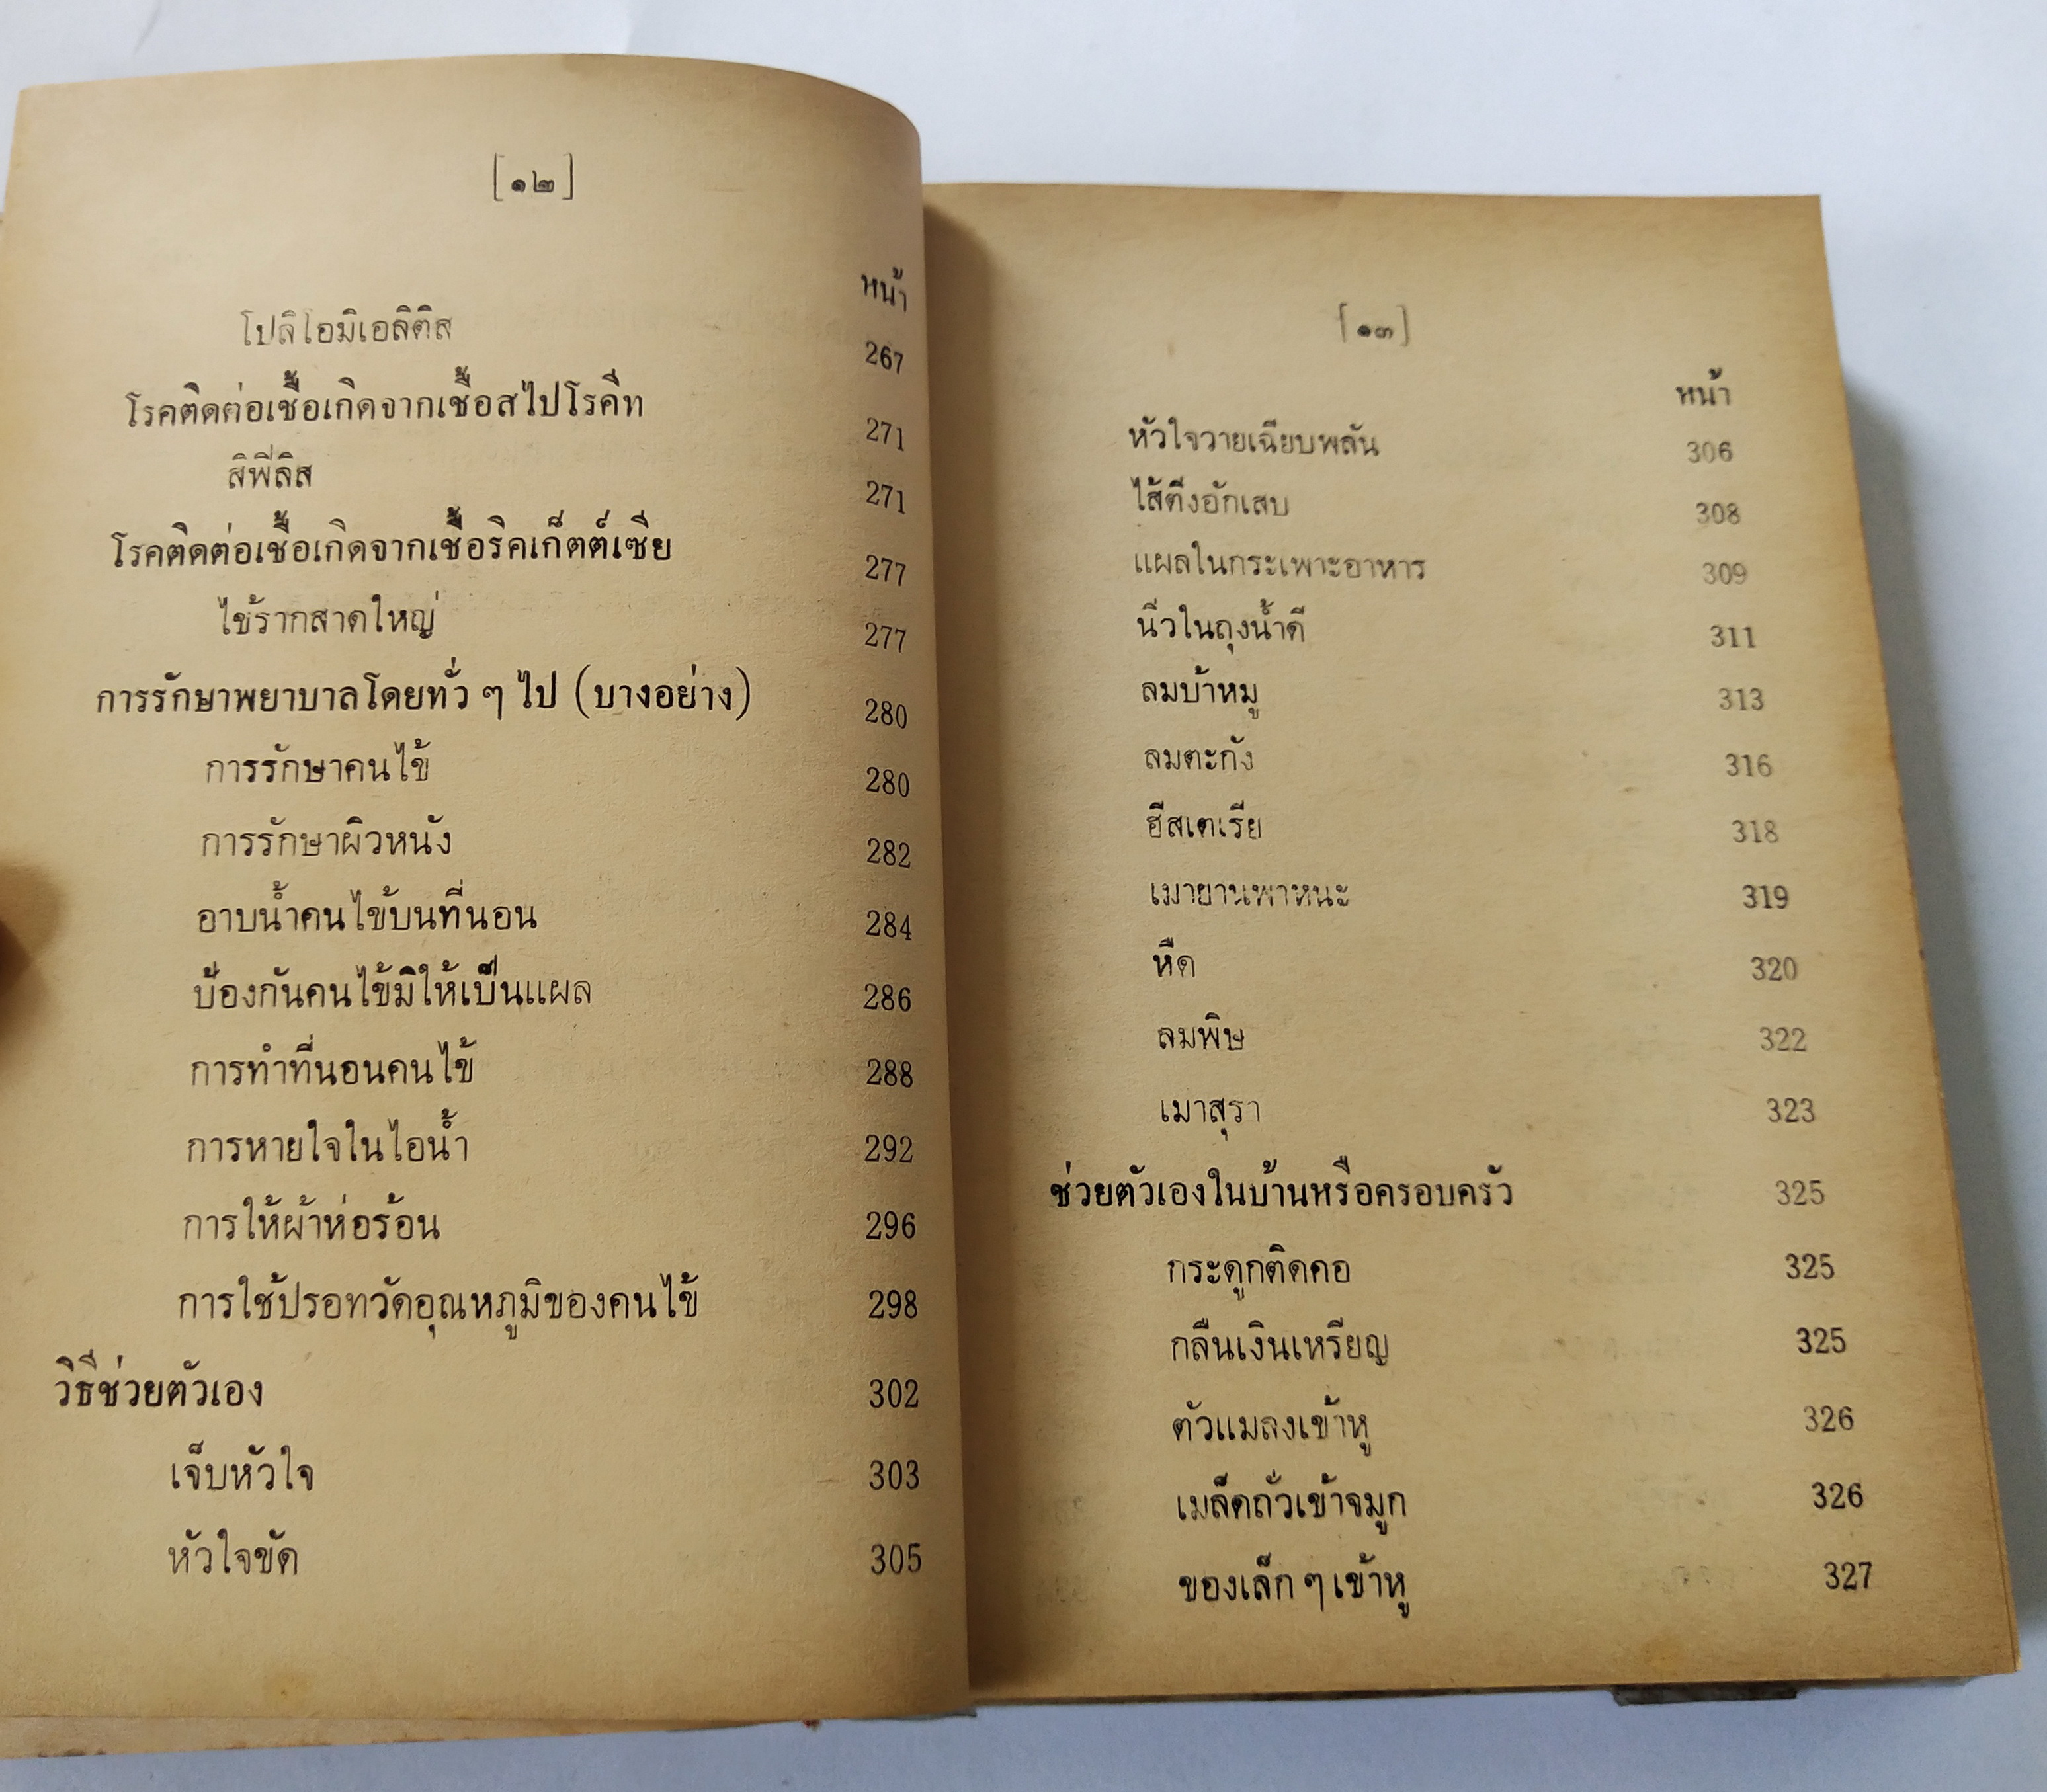 [๑๒]
หน้า
โปลิโอมิเอลิติส 267
โรคติดต่อเชื้อเกิดจากเชื้อสไปโรคีท 271
สิฟิลิส 271
โรคติดต่อเชื้อเกิดจากเชื้อริคเก็ตต์เซีย 277
ไข้รากสาดใหญ่ 277
การรักษาพยาบาลโดยทั่ว ๆ ไป (บางอย่าง) 280
การรักษาคนไข้ 280
การรักษาผิวหนัง 282
อาบน้ำคนไข้บนที่นอน 284
ป้องกันคนไข้มิให้เป็นแผล 286
การทำที่นอนคนไข้ 288
การหายใจในไอน้ำ 292
การให้ผ้าห่อร้อน 296
การใช้ปรอทวัดอุณหภูมิของคนไข้ 298
วิธีช่วยตัวเอง 302
เจ็บหัวใจ 303
หัวใจขัด 305
[๑๓]
หน้า
หัวใจวายเฉียบพลัน 306
ไส้ติ่งอักเสบ 308
แผลในกระเพาะอาหาร 309
นิ่วในถุงน้ำดี 311
ลมบ้าหมู 313
ลมตะกัง 316
ฮีสเตเรีย 318
เมายานพาหนะ 319
หืด 320
ลมพิษ 322
เมาสุรา 323
ช่วยตัวเองในบ้านหรือครอบครัว 325
กระดูกติดคอ 325
กลืนเงินเหรียญ 325
ตัวแมลงเข้าหู 326
เมล็ดถั่วเข้าจมูก 326
ของเล็ก ๆ เข้าหู 327